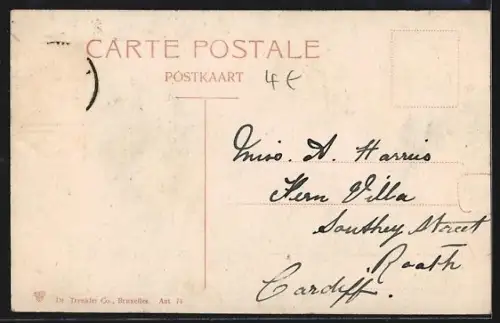 CARTE POSTALE
PÓSTKAART
4€
Miss. A. Harris
Fern Villa
Southey Street
Roath
Cardiff.
Dr Trenkler Co., Bruxelles. Ant. 74